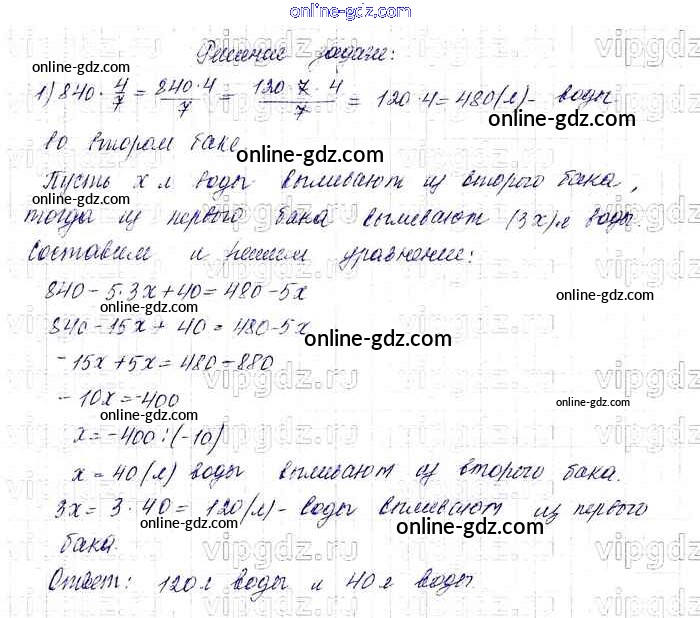 online-gdz.com
Решение задачи:
online-gdz.com
1) 840 · 4/7 = 840·4/7 = 120·7·4/7 = 120·4=480(л)- воды
во втором баке
online-gdz.com
Пусть х л воды выливают из второго бака,
online-gdz.com
тогда из первого бака выливают (3х)л воды.
Составим и решим уравнение:
online-gdz.com
840-5·3х+40=480-5х
online-gdz.com
840-15х+40=480-5х
online-gdz.com
-15х+5х=480-880
-10х=-400
online-gdz.com
х=-400:(-10)
online-gdz.com
х=40(л) воды выливают из второго бака.
3х=3·40=120(л)-воды выливают из первого
online-gdz.com
online-gdz.com
бака.
Ответ: 120л воды и 40л воды
vipgdz.ru